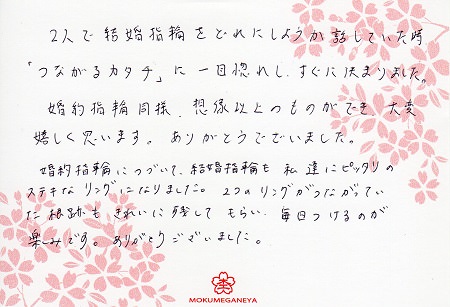 2人で結婚指輪をどれにしようか話していた時
「つながるカタチ」に一目惚れし、すぐに決まりました。
婚約指輪同様、想像以上のものができ、大変
嬉しく思います。ありがとうございました。
婚約指輪につづいて、結婚指輪も私達にピッタリの
ステキなリングになりました。2つのリングがつながってい
た根跡もきれいに残してもらい、毎日つけるのが
楽しみです。ありがとうございました。
MOKUMEGANEYA